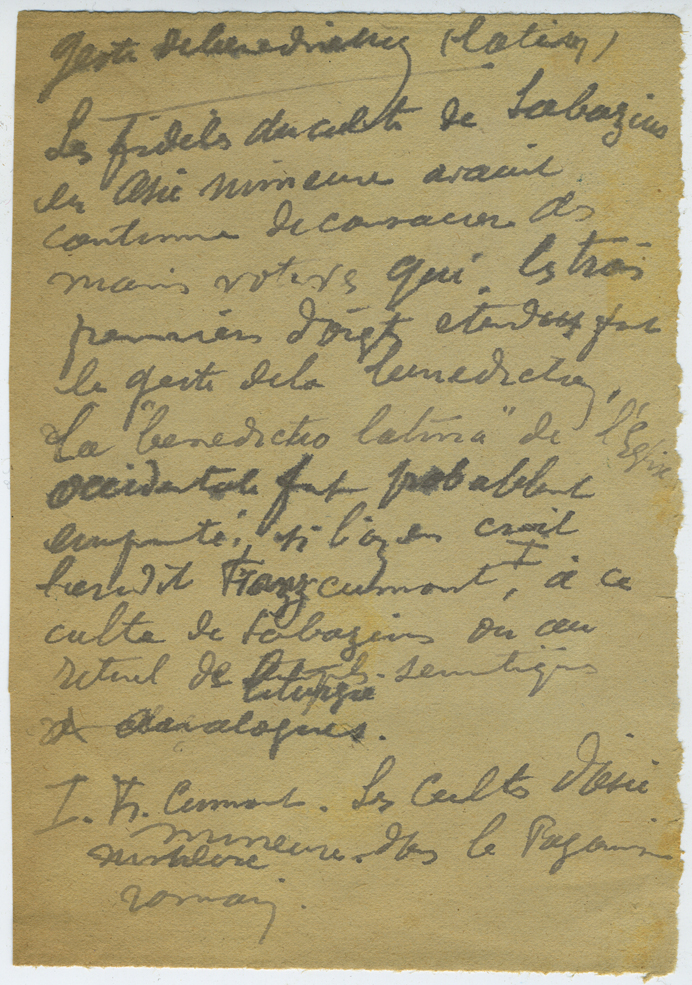 geste de benediction (latin)
Les fidèles du culte de Sabazius
en Asie mineure avait
coutume de consacrer des
mains votives qui, les trois
premiers doigts etendus fait
le geste de la benediction,
La "benedictio latina" de l'Eglise
occidentale fut probablemt
emprunté, si l'on en croit
l'erudit Franz Cumont I, à ce
culte de Sabazius ou au
rituel de temples semitiques
liturgie
analogues.
I. Fr. Cumont. Les Cultes d'Asie
mineure. dans le Paganisme
mineure
romain.